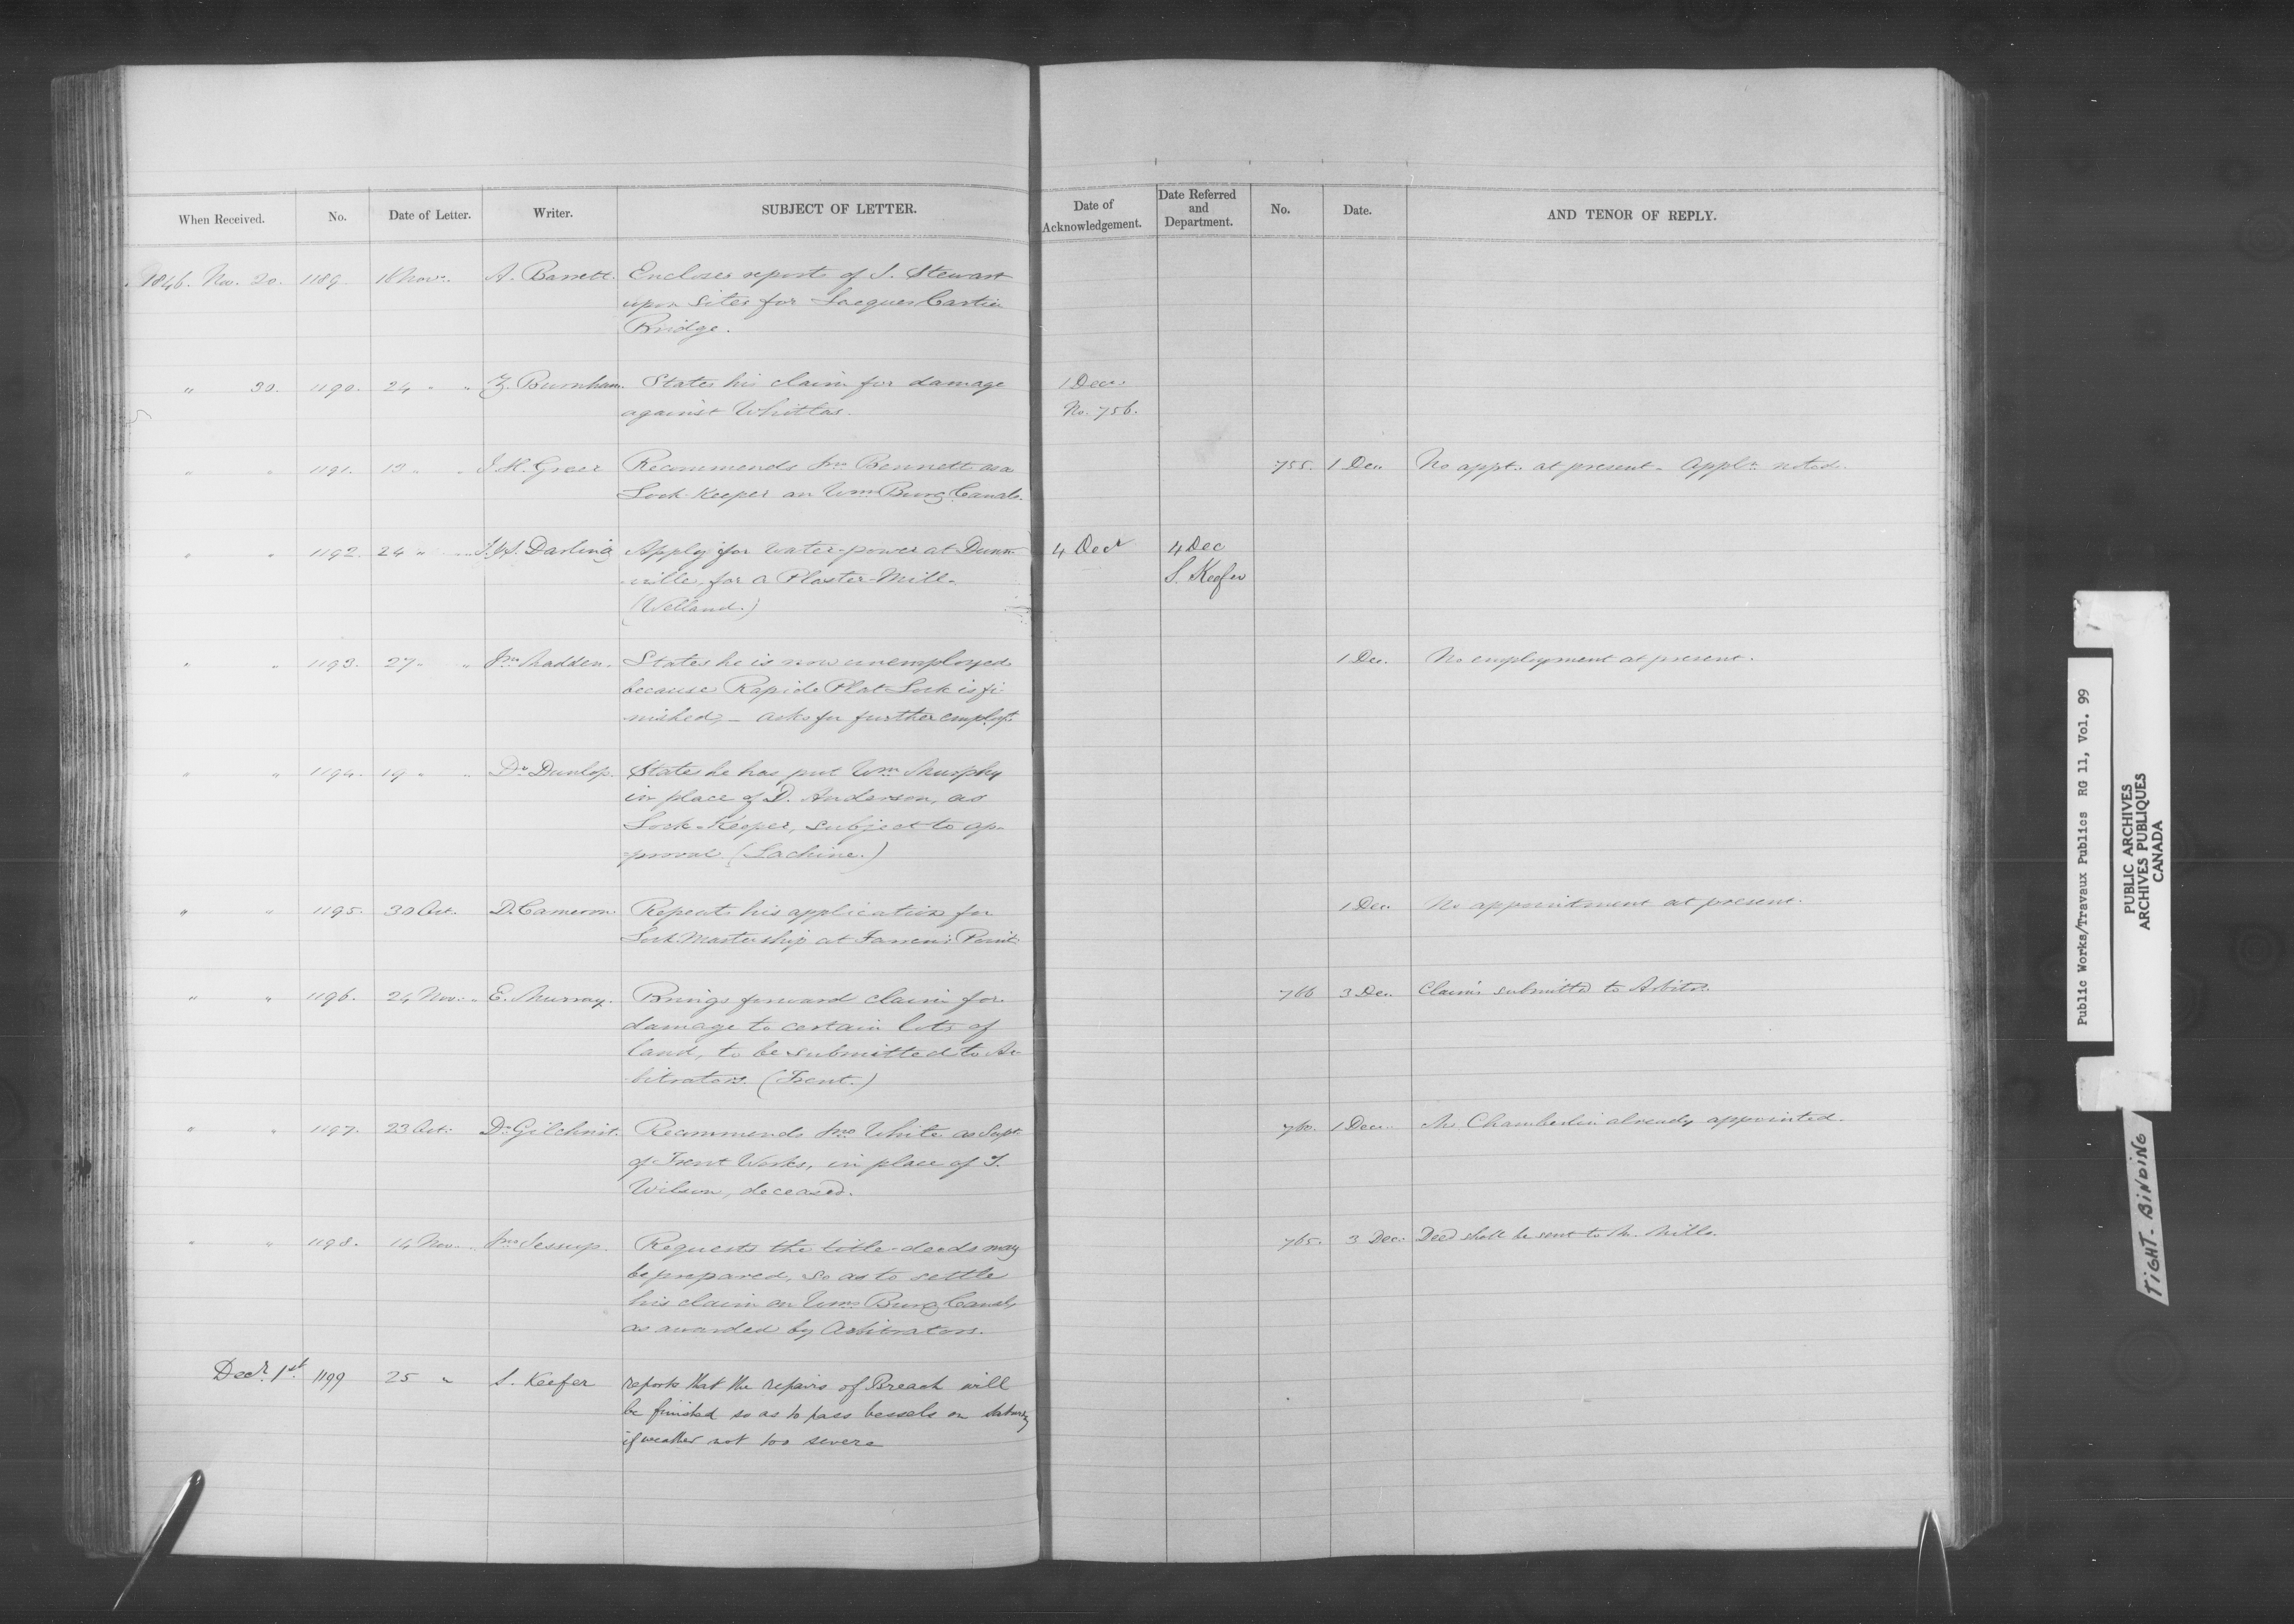 When Received. No. Date of Letter. Writer. SUBJECT OF LETTER. Date of Acknowledgement. Date Referred and Department. No. Date. AND TENOR OF REPLY.
1846. Nov. 20. 1189. 18 Novr. A. Barrett. Encloses reports of J. Stewart
upon sites for Jacques Cartier
Bridge.
" 30. 1190. 24 " " Z. Burnham. States his claim for damage 1 Decr.
against Whitlas. No. 756.
" " 1191. 19 " " J. H. Greer Recommends Jno. Bennett as a 755. 1 Dec. No appt. at present. Appln. noted.
Lock-Keeper on Wms Burg Canal.
" " 1192. 24 " " Darling Apply for water-power at Dunn- 4 Decr 4 Dec
ville, for a Plaster-Mill. S. Keefer
(Welland.)
" " 1193. 27 " " Jno. Madden. States he is now unemployed 1 Dec. No employment at present.
because Rapide Plat Lock is fi-
nished, — asks for further employt.
" " 1194. 19 " " Dr. Dunlop. States he has put Wm. Murphy
in place of D. Anderson, as
Lock-Keeper, subject to ap-
proval. (Lachine.)
" " 1195. 30 Oct. D. Cameron. Repeats his application for 1 Dec. No appointment at present.
Lock Mastership at Farren's Point.
" " 1196. 24 Nov. " E. Murray. Brings forward claim for 766 3 Dec. Claims submitted to Arbitrs.
damage to certain lots of
land, to be submitted to Ar-
bitrators. (Trent.)
" " 1197. 23 Oct. Dr. Gilchrist. Recommends Jno. White as Supt. 760. 1 Dec. Mr. Chamberlin already appointed.
of Trent Works, in place of T.
Wilson, deceased.
" " 1198. 14 Nov. " Jno. Jessup. Requests the title-deeds may 765. 3 Dec. Deed shall be sent to Mr. Mills.
be prepared, so as to settle
his claim on Wms Burg Canal,
as awarded by Arbitrators.
Decr. 1st. 1199 25 " S. Keefer reports that the repairs of Breach will
be finished so as to pass vessels on Saturday
if weather not too severe
Public Works/Travaux Publics RG 11, Vol. 99
PUBLIC ARCHIVES
ARCHIVES PUBLIQUES
CANADA
TIGHT-BINDING